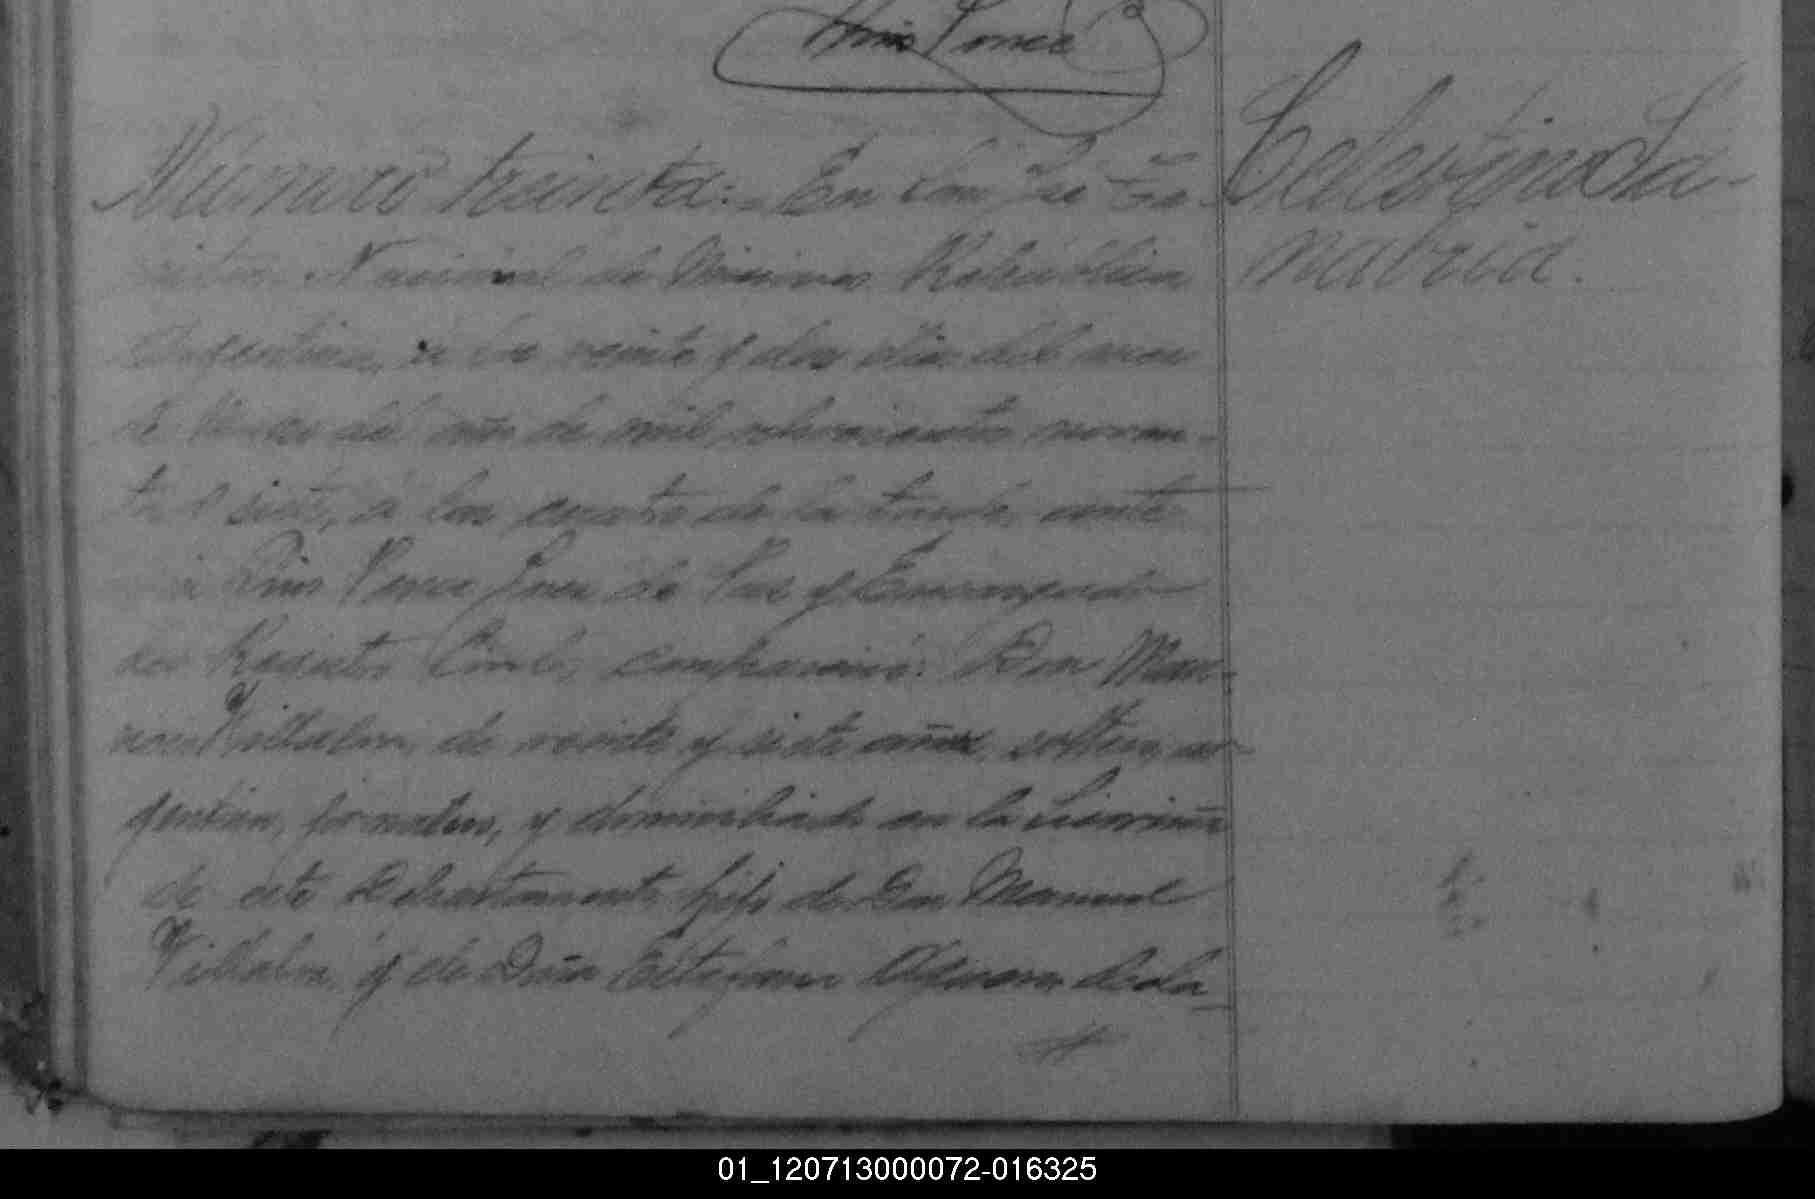 Pius Ponce
Número treinta: En San José Te-
rritorio Nacional de Misiones República
Argentina, a los veinte y dos dias del mes
de del año de mil ochocientos noven-
ta y siete, á las cuatro de la tarde, ante
mi Pius Ponce Juez de Paz y Encargado
del Registro Civil, compareció: Don
Villalba, de veinte y siete años, soltero, ar-
gentino, jornalero, y domiciliado en la
de este Departamento hijo de Don Manuel
Villalba, y de Doña Estefana decla-
Celestino Sa-
nabria.
01_120713000072-016325